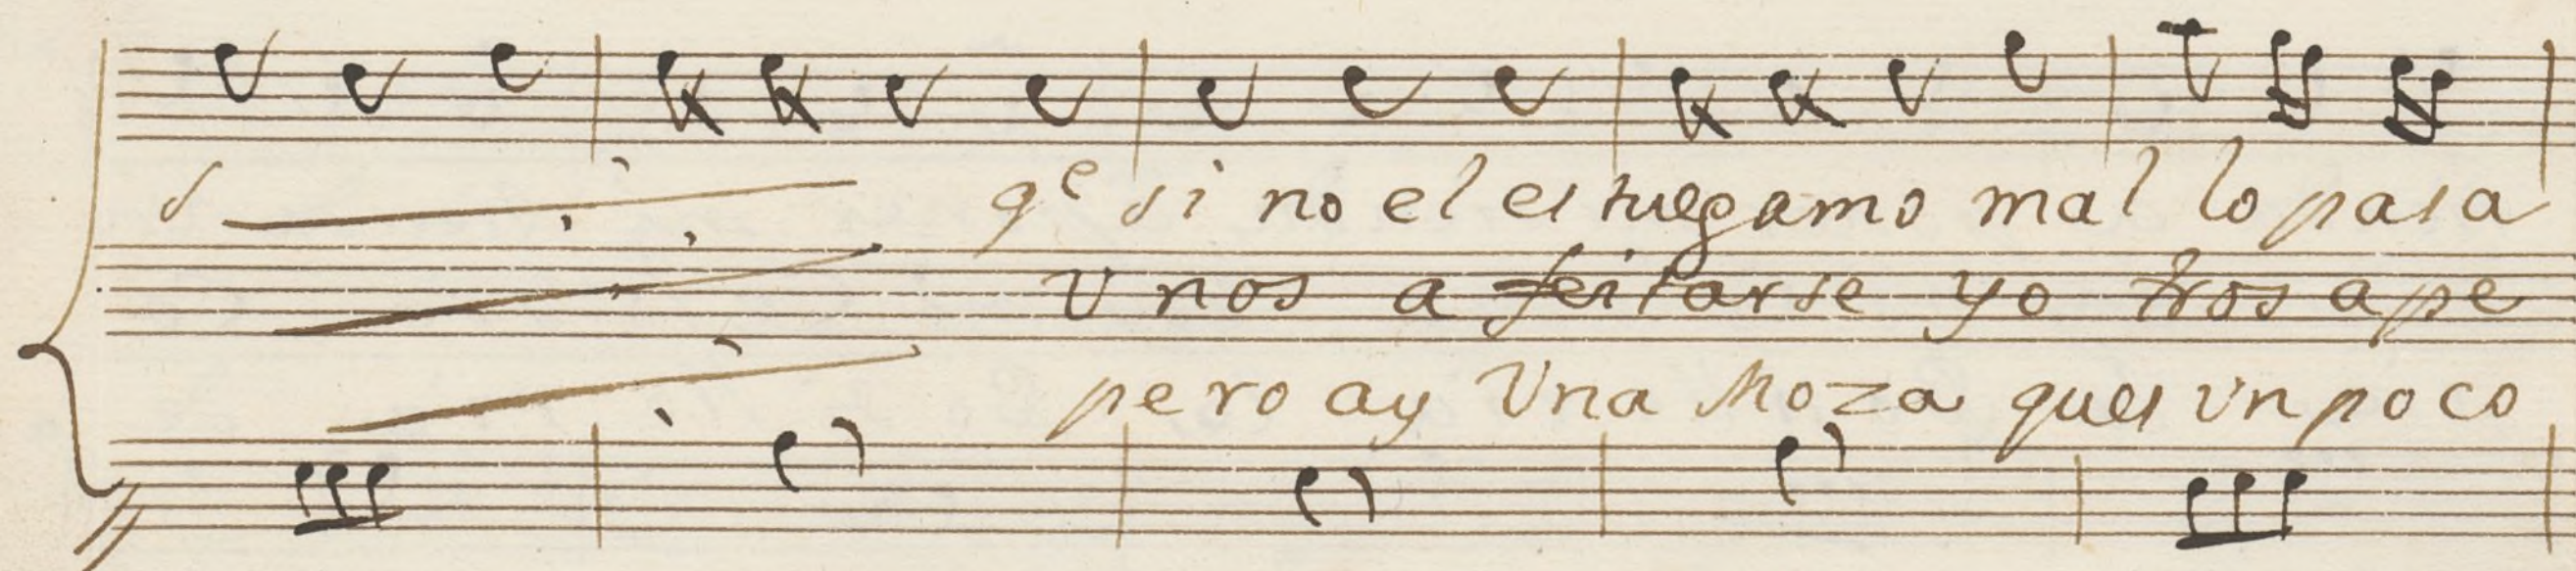 s qe si no el es tuegamo mal lo pasa
v nos a feitarse yo tros a pe
pero ay Vna Moza ques vn poco